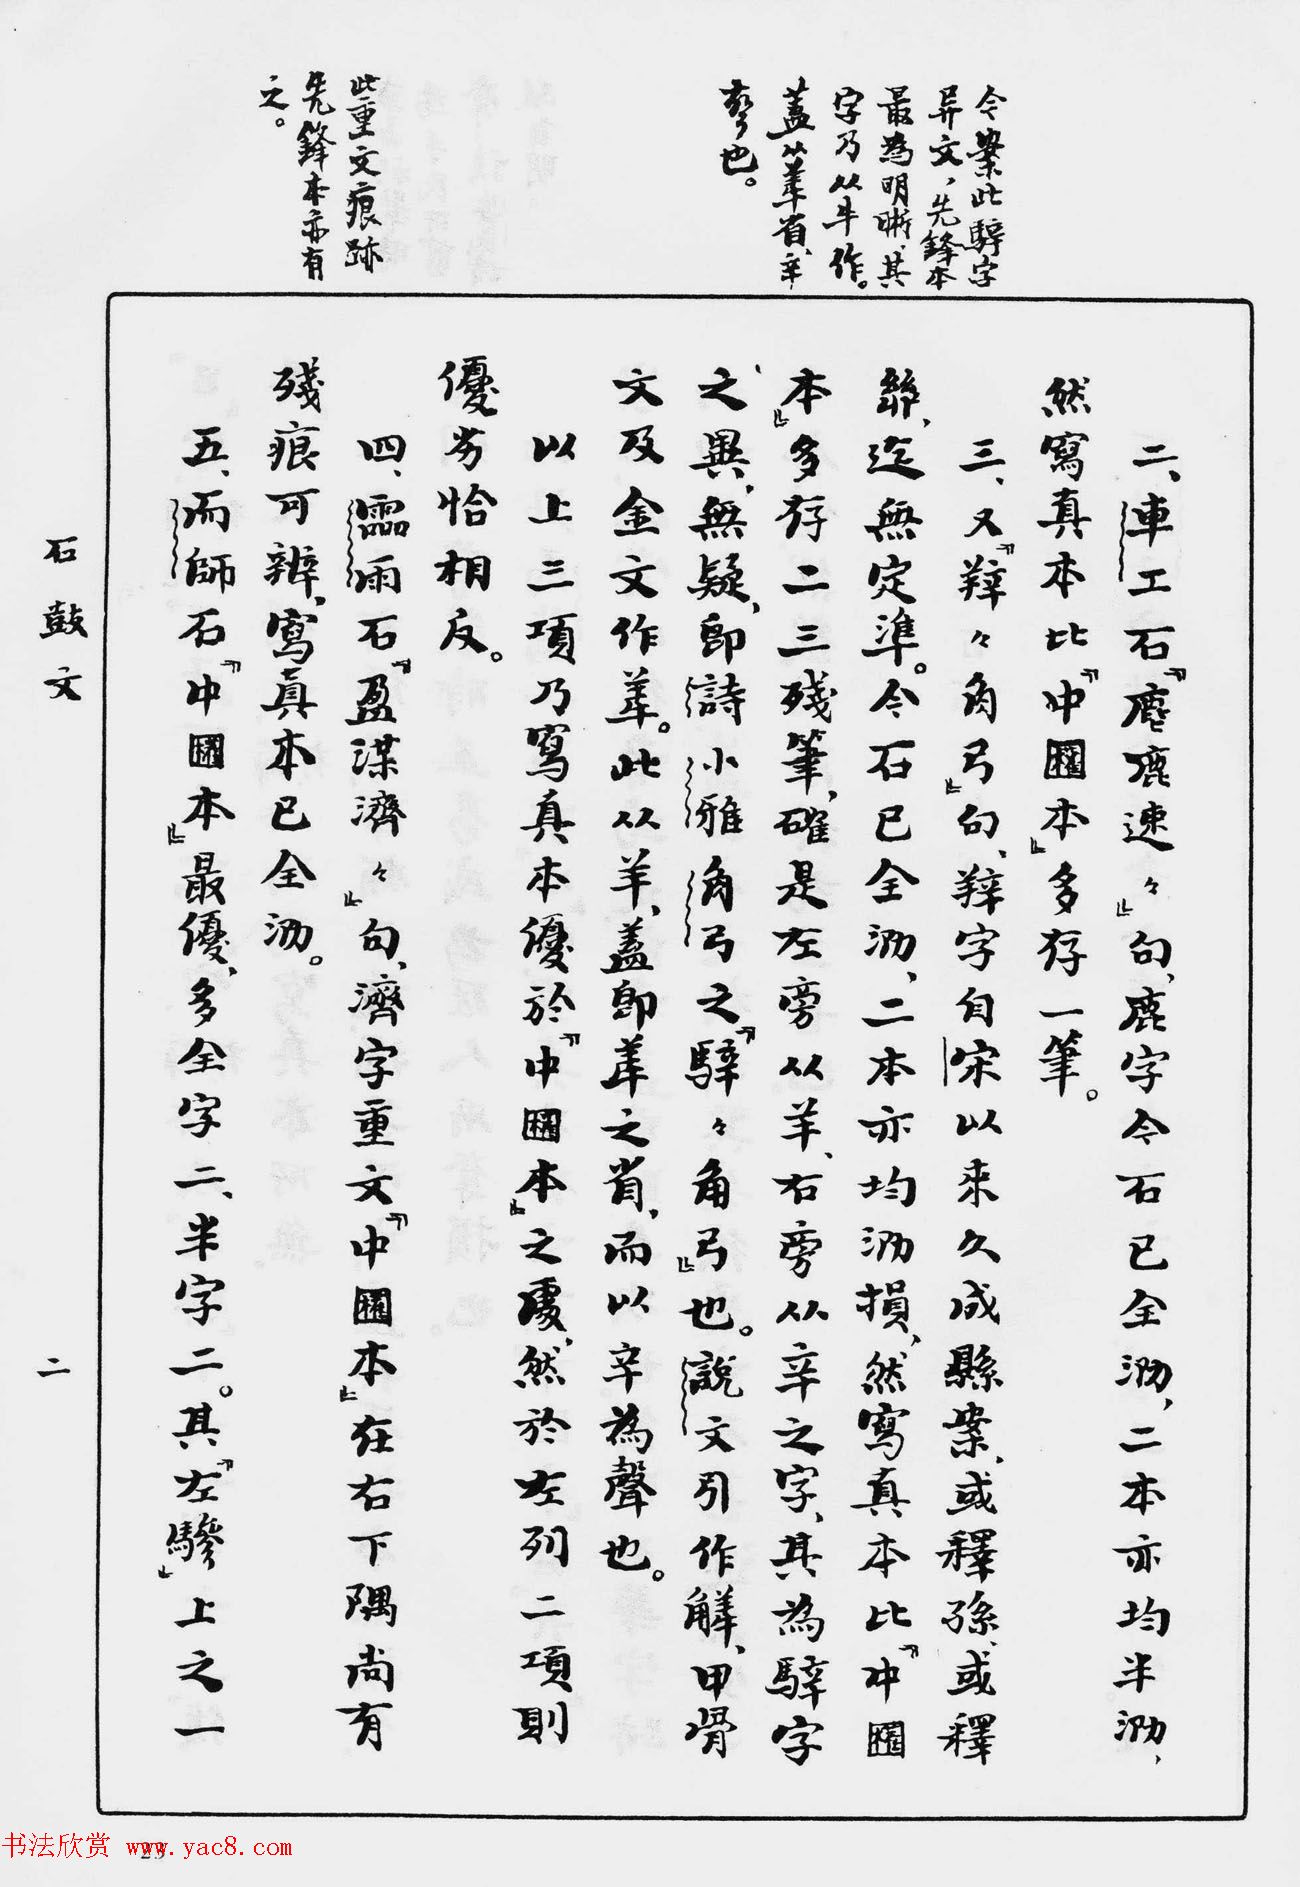 今案此騂字
异文，先鋒本
最為明晰，其
字乃从牛作。
蓋从𦍒省、辛
聲也。
此重文痕跡
先鋒本亦有
之。
二、車工石『麀鹿速々』句、鹿字今石已全泐、二本亦均半泐、
然寫真本比『中國本』多存一筆。
三、又『𦍒々角弓』句、𦍒字自宋以來久成縣案、或釋孫、或釋
緐、迄無定準。今石已全泐、二本亦均泐損、然寫真本比『中國
本』多存二三殘筆、確是左旁从羊、右旁从辛之字、其為騂字
之異、無疑、即詩小雅角弓之『騂々角弓』也。說文引作觲、甲骨
文及金文作𦍒。此从羊、蓋即𦍒之省、而以辛為聲也。
以上三項乃寫真本優於『中國本』之處、然於左列二項則
優劣恰相反。
四、霝雨石『盈渫濟々』句、濟字重文『中國本』在右下隅尚有
殘痕可辨、寫真本已全泐。
五、而師石『中國本』最優、多全字二、半字二。其『左驂』上之一
石鼓文
二
23
书法欣赏 www.yac8.com